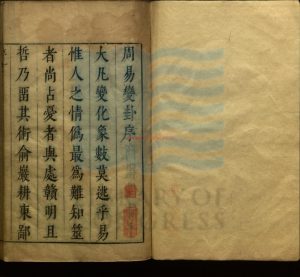 周易變卦序
大凡變化象數莫逃乎易
惟人之情偽最為難知筮
者尚占憂者與處贛明且
哲乃畱其術俞巖耕東鄙